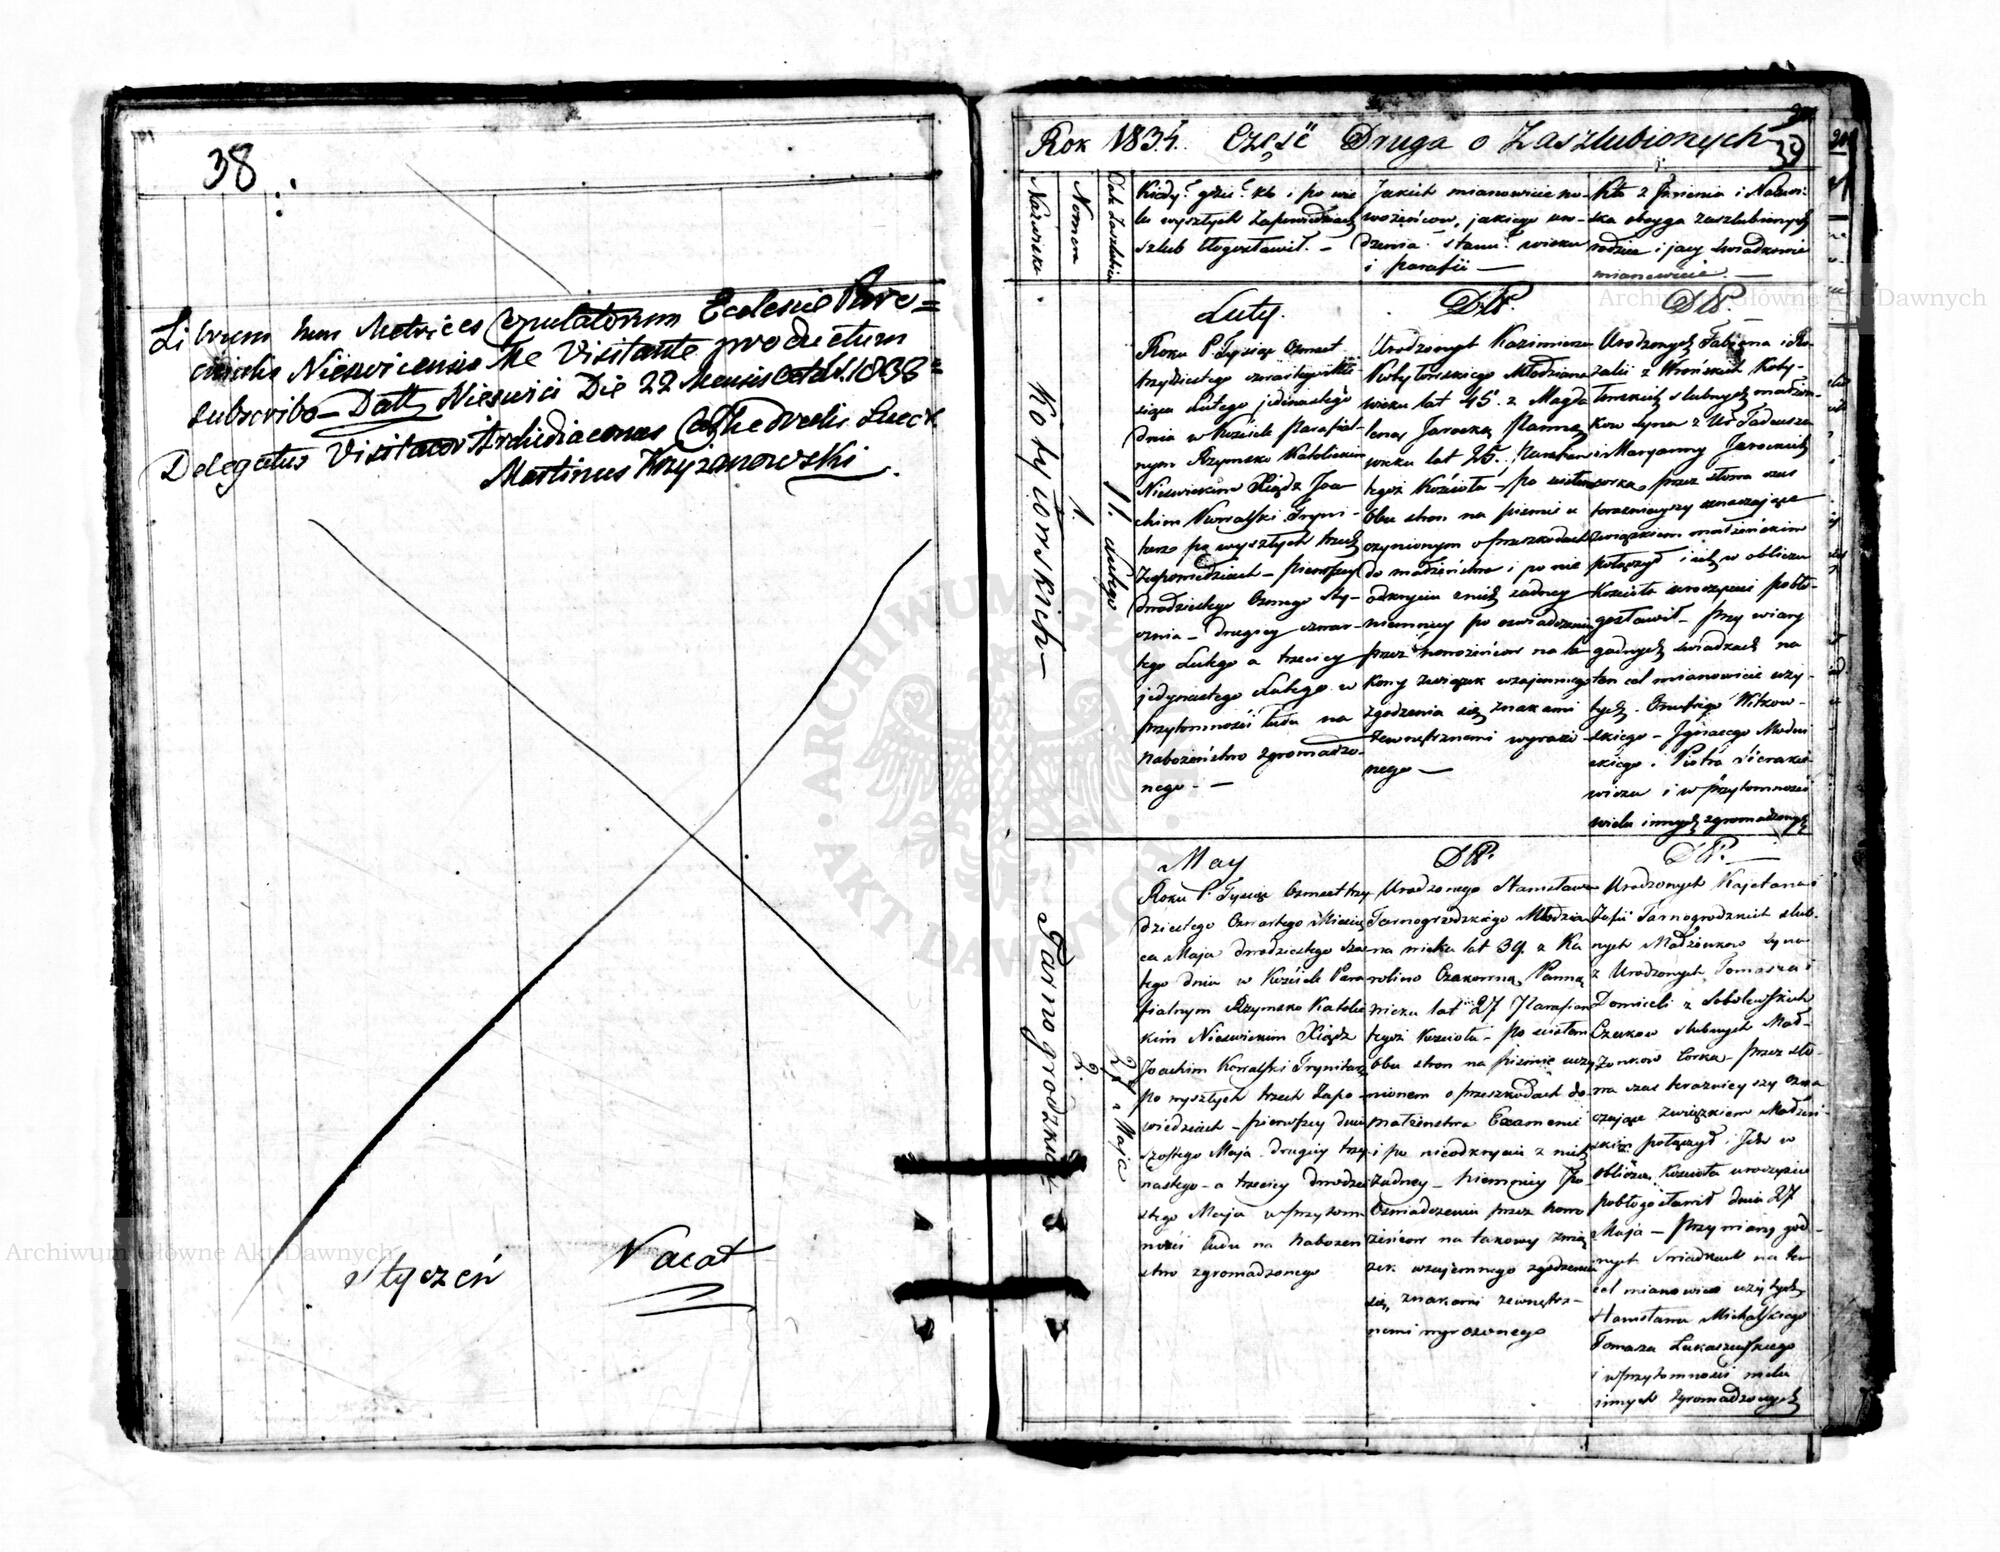 38
Librum hunc Metrices Copulatorum Ecclesie Paro=
chialis Niesvicensis Me Visitante productum
subscribo Datt Niesvici Die 22 Mensis 1838
Delegatus Visitator Archidiaconus Cathedralis
Martinus Krzyżanowski
Styczeń Vacat
39
Rok 1834. Część Druga o Zaszlubionych
Nazwisko
Nomera
Data Zaszlubin
Kiedy? gdzie? kto i po wie
lu wyszłych Zapowiedziach
szlub błogosławił. -
Jakich mianowicie no-
wożeńców, jakiego uro-
dzenia stanu wieku
i parafii —
Kto z Imienia i Nazwi-
ska oboyga zaszlubionych
rodzice i jacy świadkowie
mianowicie —
Kobyłońskich
1.
11. Lutego
Luty.
Roku P. Tysiąc Osmset
trzydziestego czwartego Mie-
siąca Lutego jedinastego
dnia w Kościele Parafial-
nym Rzymsko Katolickim
Nieswickim Xiądz Joa
chim Kowalski Tryni-
tarz po wyszłych trzech
Zapowiedziach - pierwszey
dwudziestego Osmego Sty-
cznia - drugiey czwar-
tego Lutego a trzeciey
jedynastego Lutego w
przytomności ludu na
Nabożeństwo zgromadzo-
nego - —
D. P.
Urodzonych Kazimierza
Kobyłońskiego Młodziana
wieku lat 45. z Magda
leną Jarocką Panną
wieku lat 25. Parafian
tegoż Kościoła - po
Obu stron na piśmie u
czynionym o przeszkodach
do małżeństwa i po nie
odkryciu z nich żadney
niemniey po oswiadczeniu
przez nowożeńców na ta
kowy związek wzajemnego
zgodzenia się znakami
zewnętrznemi wyrażo-
nego —
D. P. —
Urodzonych Fabiana i Ro
zalii z Wrońskich Koby-
łońskich slubnych małżon-
kow syna z Ur: Tadeusza
i Maryanny Jarockich
corką, przez słowa czas
teraznieyszy oznaczające
związkiem małżeńskim
połączył i ich w obliczu
Kościoła uroczyście pobło-
gosławił - przy wiary
godnych świadkach na
ten cel mianowicie uży-
tych. Onufrego Witkow-
skiego - Ignacego
skiego i Piotra
wicza i w przytomności
wielu innych zgromadzonych
Tarnogrodzkich
2.
27 Maja
May
Roku P. Tysiąc Osmset trzy
dziestego Czwartego Miesią
ca Maja dwudziestego siod
tego dnia w Kościele Para
fialnym Rzymsko Katolic
kim Nieswickim Xiądz
Joachim Kowalski Trynitarz
po wyszłych trzech Zapo-
wiedziach - pierwszey dnia
szostego Maja drugiey trzy
nastego - a trzeciey dwudzie
stego Maja w przytom
ności ludu na Nabożeń
stwo zgromadzonego
D. P.
Urodzonego Stanisława
Tarnogrodzkiego Młodzia
na wieku lat 39. z Ka
roliną Czakowną Panną
wieku lat 27 Parafian
tegoż Kościoła - po
Obu stron na piśmie uczy
nionem o przeszkodach do
małżeństwa Examenie
i po nieodkryciu z nich
żadney - niemniey po
Oswiadczeniu przez nowo
żeńców na takowy zwią
zek wzajemnego zgodzenia
się, znakami zewnętrz-
nemi wyrażonego
D. P. —
Urodzonych Kajetana i
Zofii Tarnogrodzkich slub-
nych Małżonkow Syna
z Urodzonych Tomasza i
Domiceli z Sobolewskich
Czakow slubnych Mał-
żonków Corką - przez sło-
wa czas teraznieyszy ozna
czające związkiem Małżeń-
skim połączył i Ich w
obliczu Kościoła uroczyście
pobłogosławił dnia 27
Maja - przy wiary god-
nych Swiadkach na ten
cel mianowicie użytych
Stanisława Michalskiego
Tomasza Łukaszewskiego
i w przytomności wielu
innych zgromadzonych
Archiwum Główne Akt Dawnych
Archiwum Główne Akt Dawnych
ARCHIWUM GŁÓWNE AKT DAWNYCH